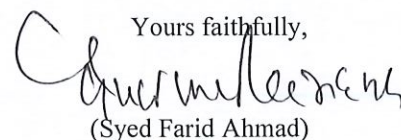 Yours faithfully,
(Syed Farid Ahmad)